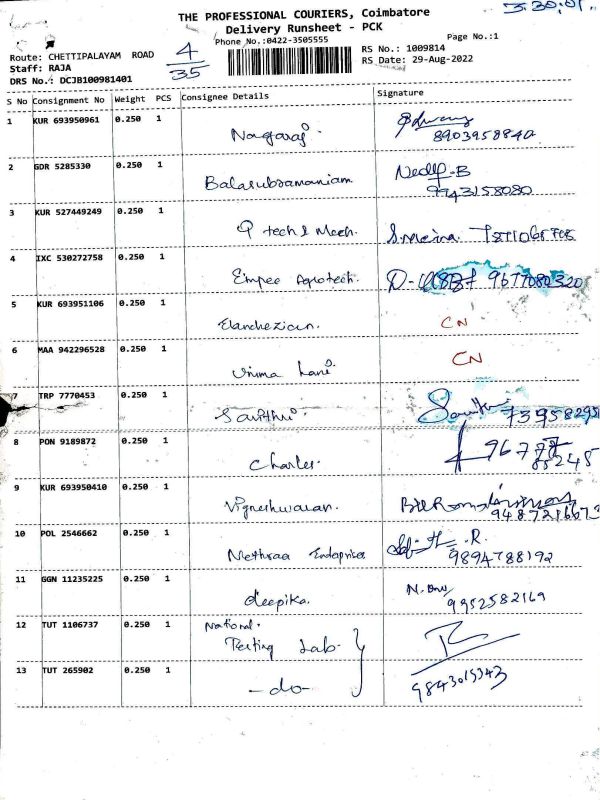 THE PROFESSIONAL COURIERS, Coimbatore
Delivery Runsheet - PCK
Phone No.:0422-3505555
Page No.:1
Route: CHETTIPALAYAM ROAD
Staff: RAJA
DRS No.: DCJB100981401
4
35
RS No.: 1009814
RS Date: 29-Aug-2022
S No Consignment No Weight PCS Consignee Details Signature
1 KUR 693950961 0.250 1 Nagaraj.
8903958840
2 GDR 5285330 0.250 1 Balasubramaniam
9743158080
3 KUR 527449249 0.250 1 Q tech & Mech.
4 IXC 530272758 0.250 1 Empee Agrotech. 9677080320
5 KUR 693951106 0.250 1 Elanchezian. CN
6 MAA 942296528 0.250 1 CN
7 TRP 7770453 0.250 1 Savithri. 73958295
8 PON 9189872 0.250 1 Charles.
9 KUR 693950410 0.250 1 Vigneshwaran.
9487216673
10 POL 2546662 0.250 1 Methraa Enterprises
9894788192
11 GGN 11235225 0.250 1 deepika.
9952582169
12 TUT 1106737 0.250 1 National.
Testing Lab.
13 TUT 265902 0.250 1 -do-
9843015343